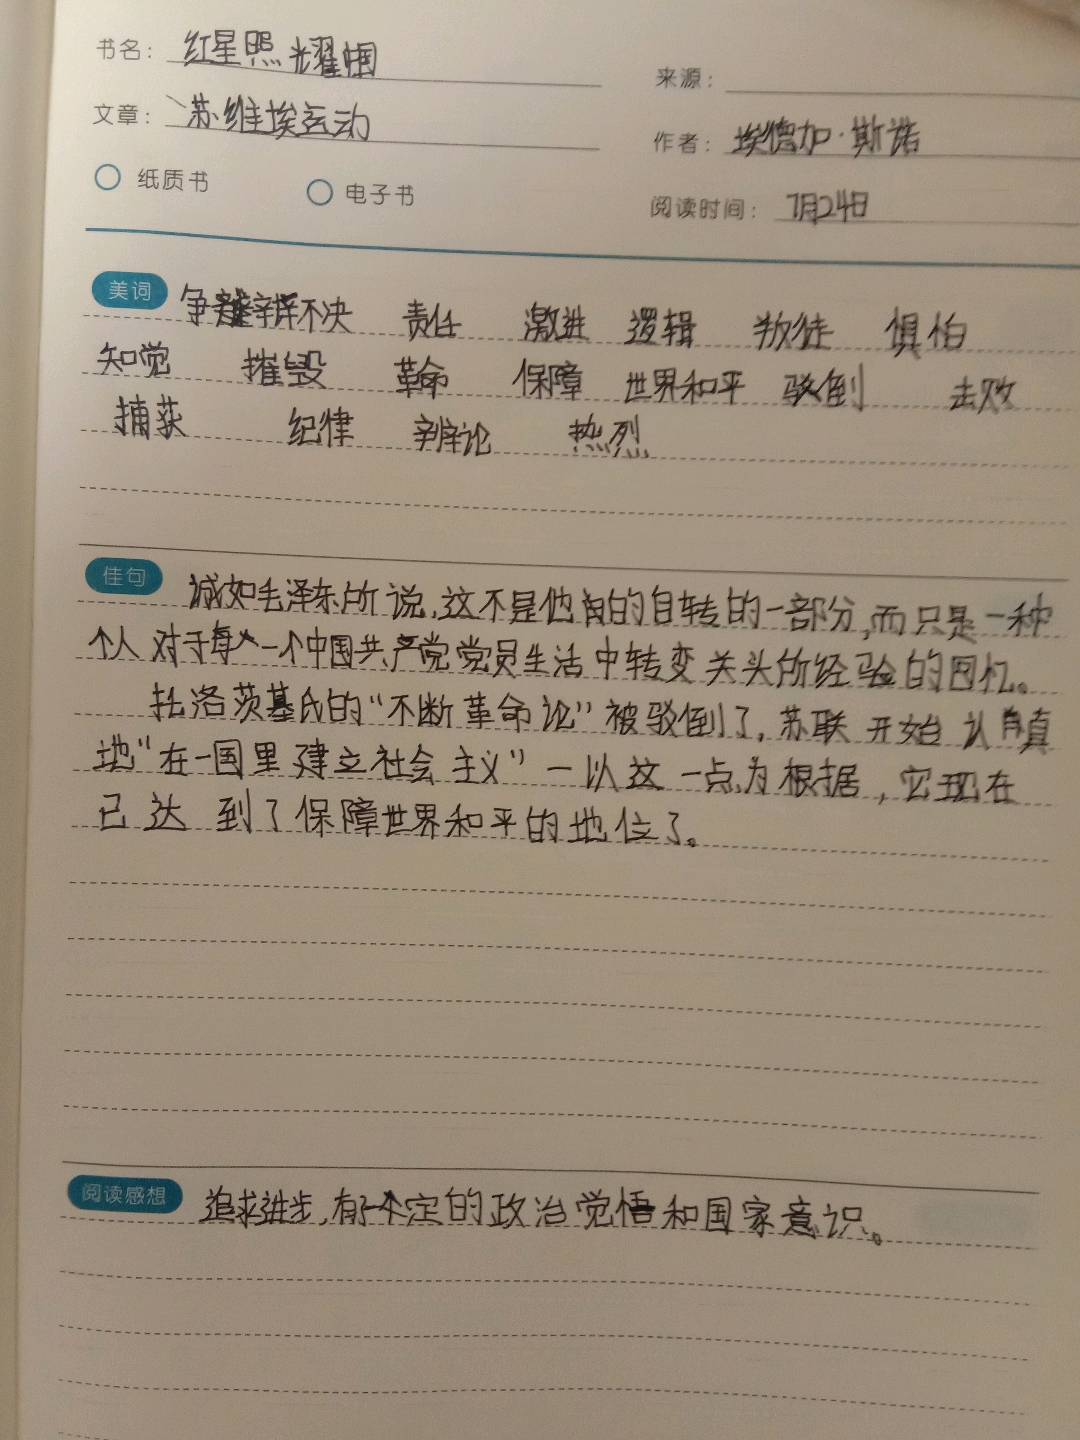 书名： 红星照耀中国
来源：
文章： 苏维埃运动
作者： 埃德加·斯诺
纸质书 电子书
阅读时间： 7月24日
美词 争辩不决 责任 激进 逻辑 叛徒 惧怕
知觉 摧毁 革命 保障 世界和平 驳倒 击败
捕获 纪律 辨论 热烈
佳句 诚如毛泽东所说，这不是他的自转的一部分，而只是一种
个人对于每一个中国共产党党员生活中转变关头所经验的回忆。
托洛茨基氏的“不断革命论”被驳倒了，苏联开始认真
地“在一国里建立社会主义”一以这一点为根据，它现在
已达到了保障世界和平的地位了。
阅读感想 追求进步，有了一定的政治觉悟和国家意识。